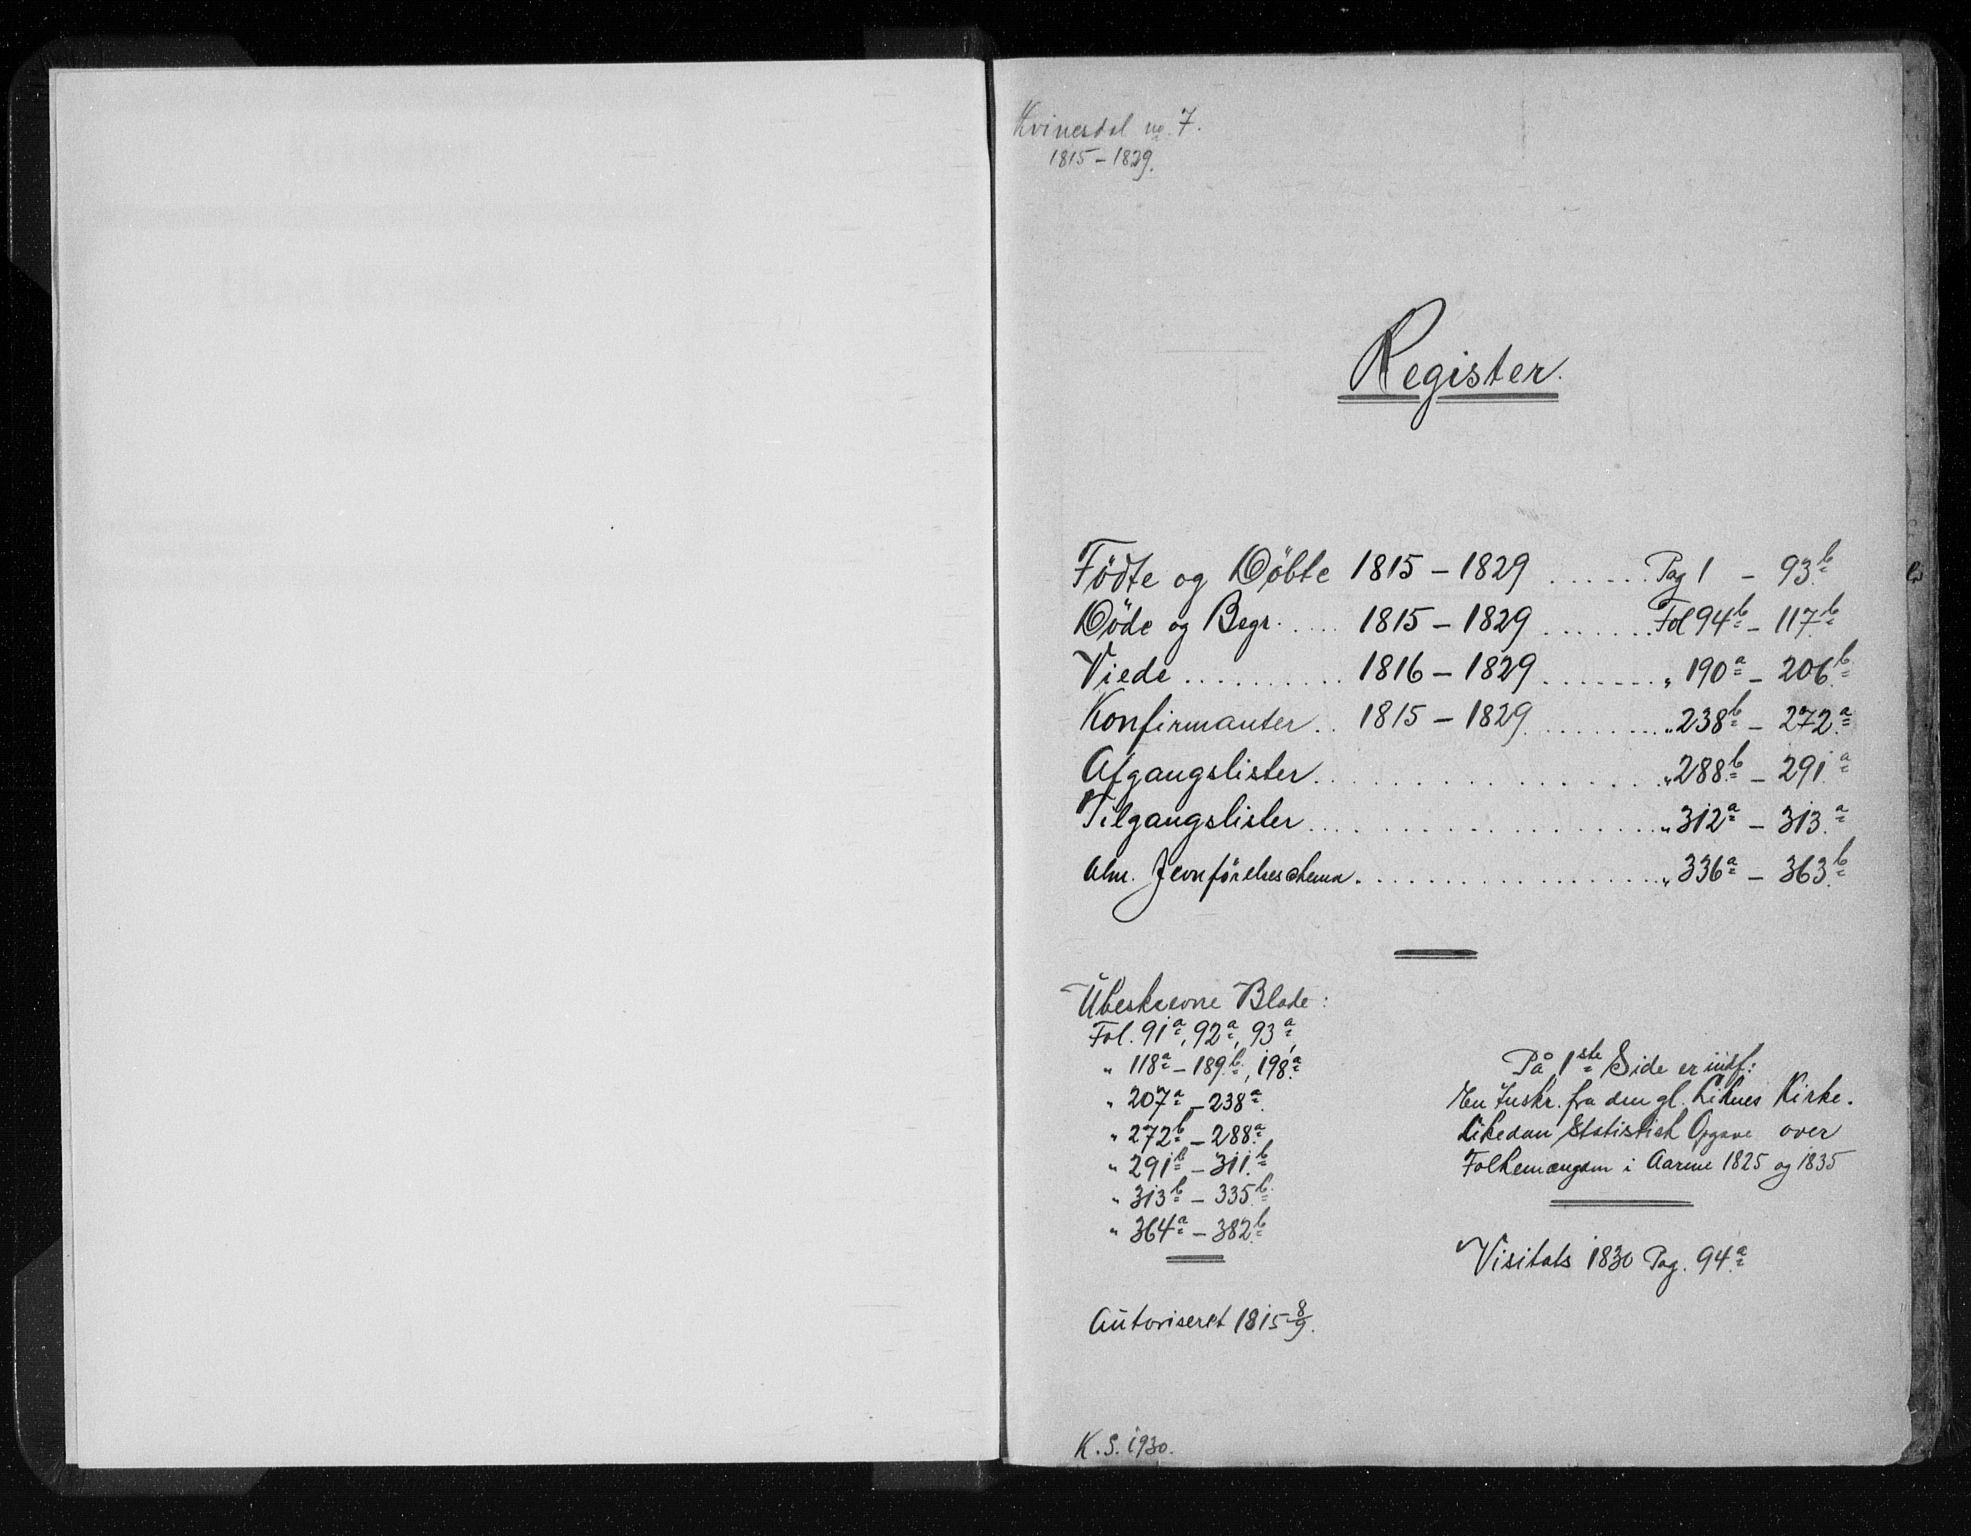 Kvinesdal no. 7.
1815 – 1829.
Register.
Födte og Döbte 1815 – 1829 ...... Pag 1 – 93b
Döde og Begr. .... 1815 – 1829 ....... Fol 94b – 117b
Viede .......... 1816 – 1829 ....... „ 190a – 206b
Konfirmanter .. 1815 – 1829 ......... „ 238b – 272a
Afgangslister ............... „ 288b – 291a
Tilgangslister ................ „ 312a – 313a
Alm. Jevnförelseschema ................ „ 336a – 363b
Ubeskrevne Blade :
Fol. 91a, 92a, 93a,
„ 118a – 189b, 198a
„ 207a – 238a
„ 272b – 288a
„ 291b – 311b
„ 313b – 335b
„ 364a – 382b
Autoriseret 1815 8/9.
På 1ste Side er indf:
En Inskr. fra den gl. Liknes Kirke.
Likedan Statistisk Opgave over
Folkemængden i Aarene 1825 og 1835
Visitats 1830 Pag. 94a
K. S. 1930.